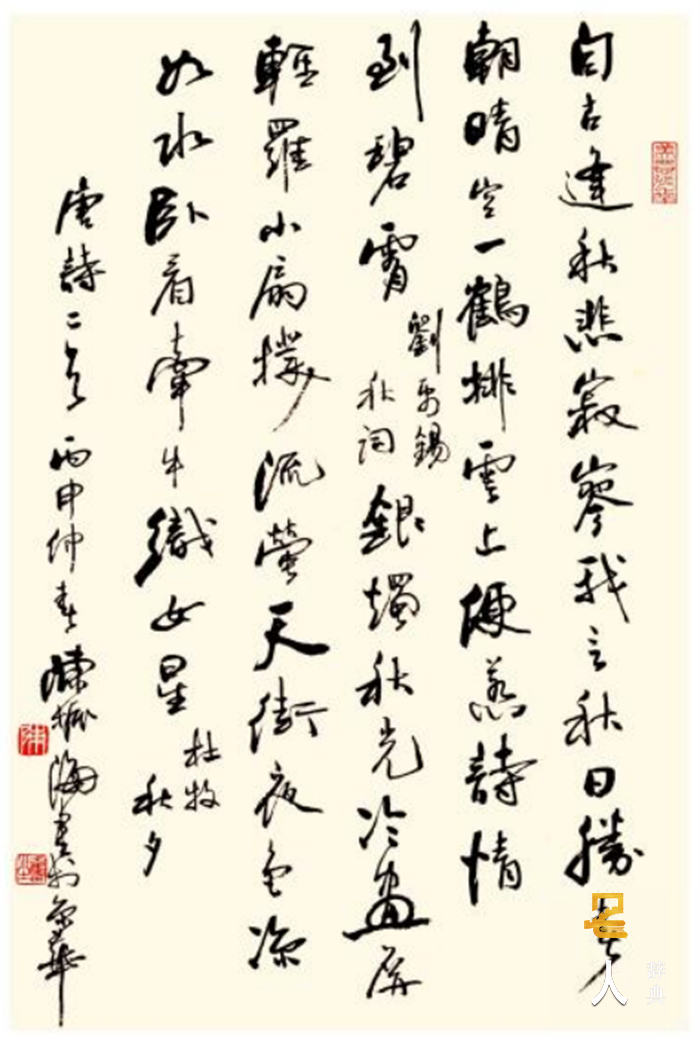 自古逢秋悲寂寥我言秋日勝春
朝晴空一鶴排雲上便惹詩情
到碧霄
劉禹錫
秋詞
銀燭秋光冷畫屏
輕羅小扇撲流螢天街夜色涼
如水卧看牽牛織女星
杜牧
秋夕
唐詩二首丙申仲春陳振海書於京華
名人
辞典